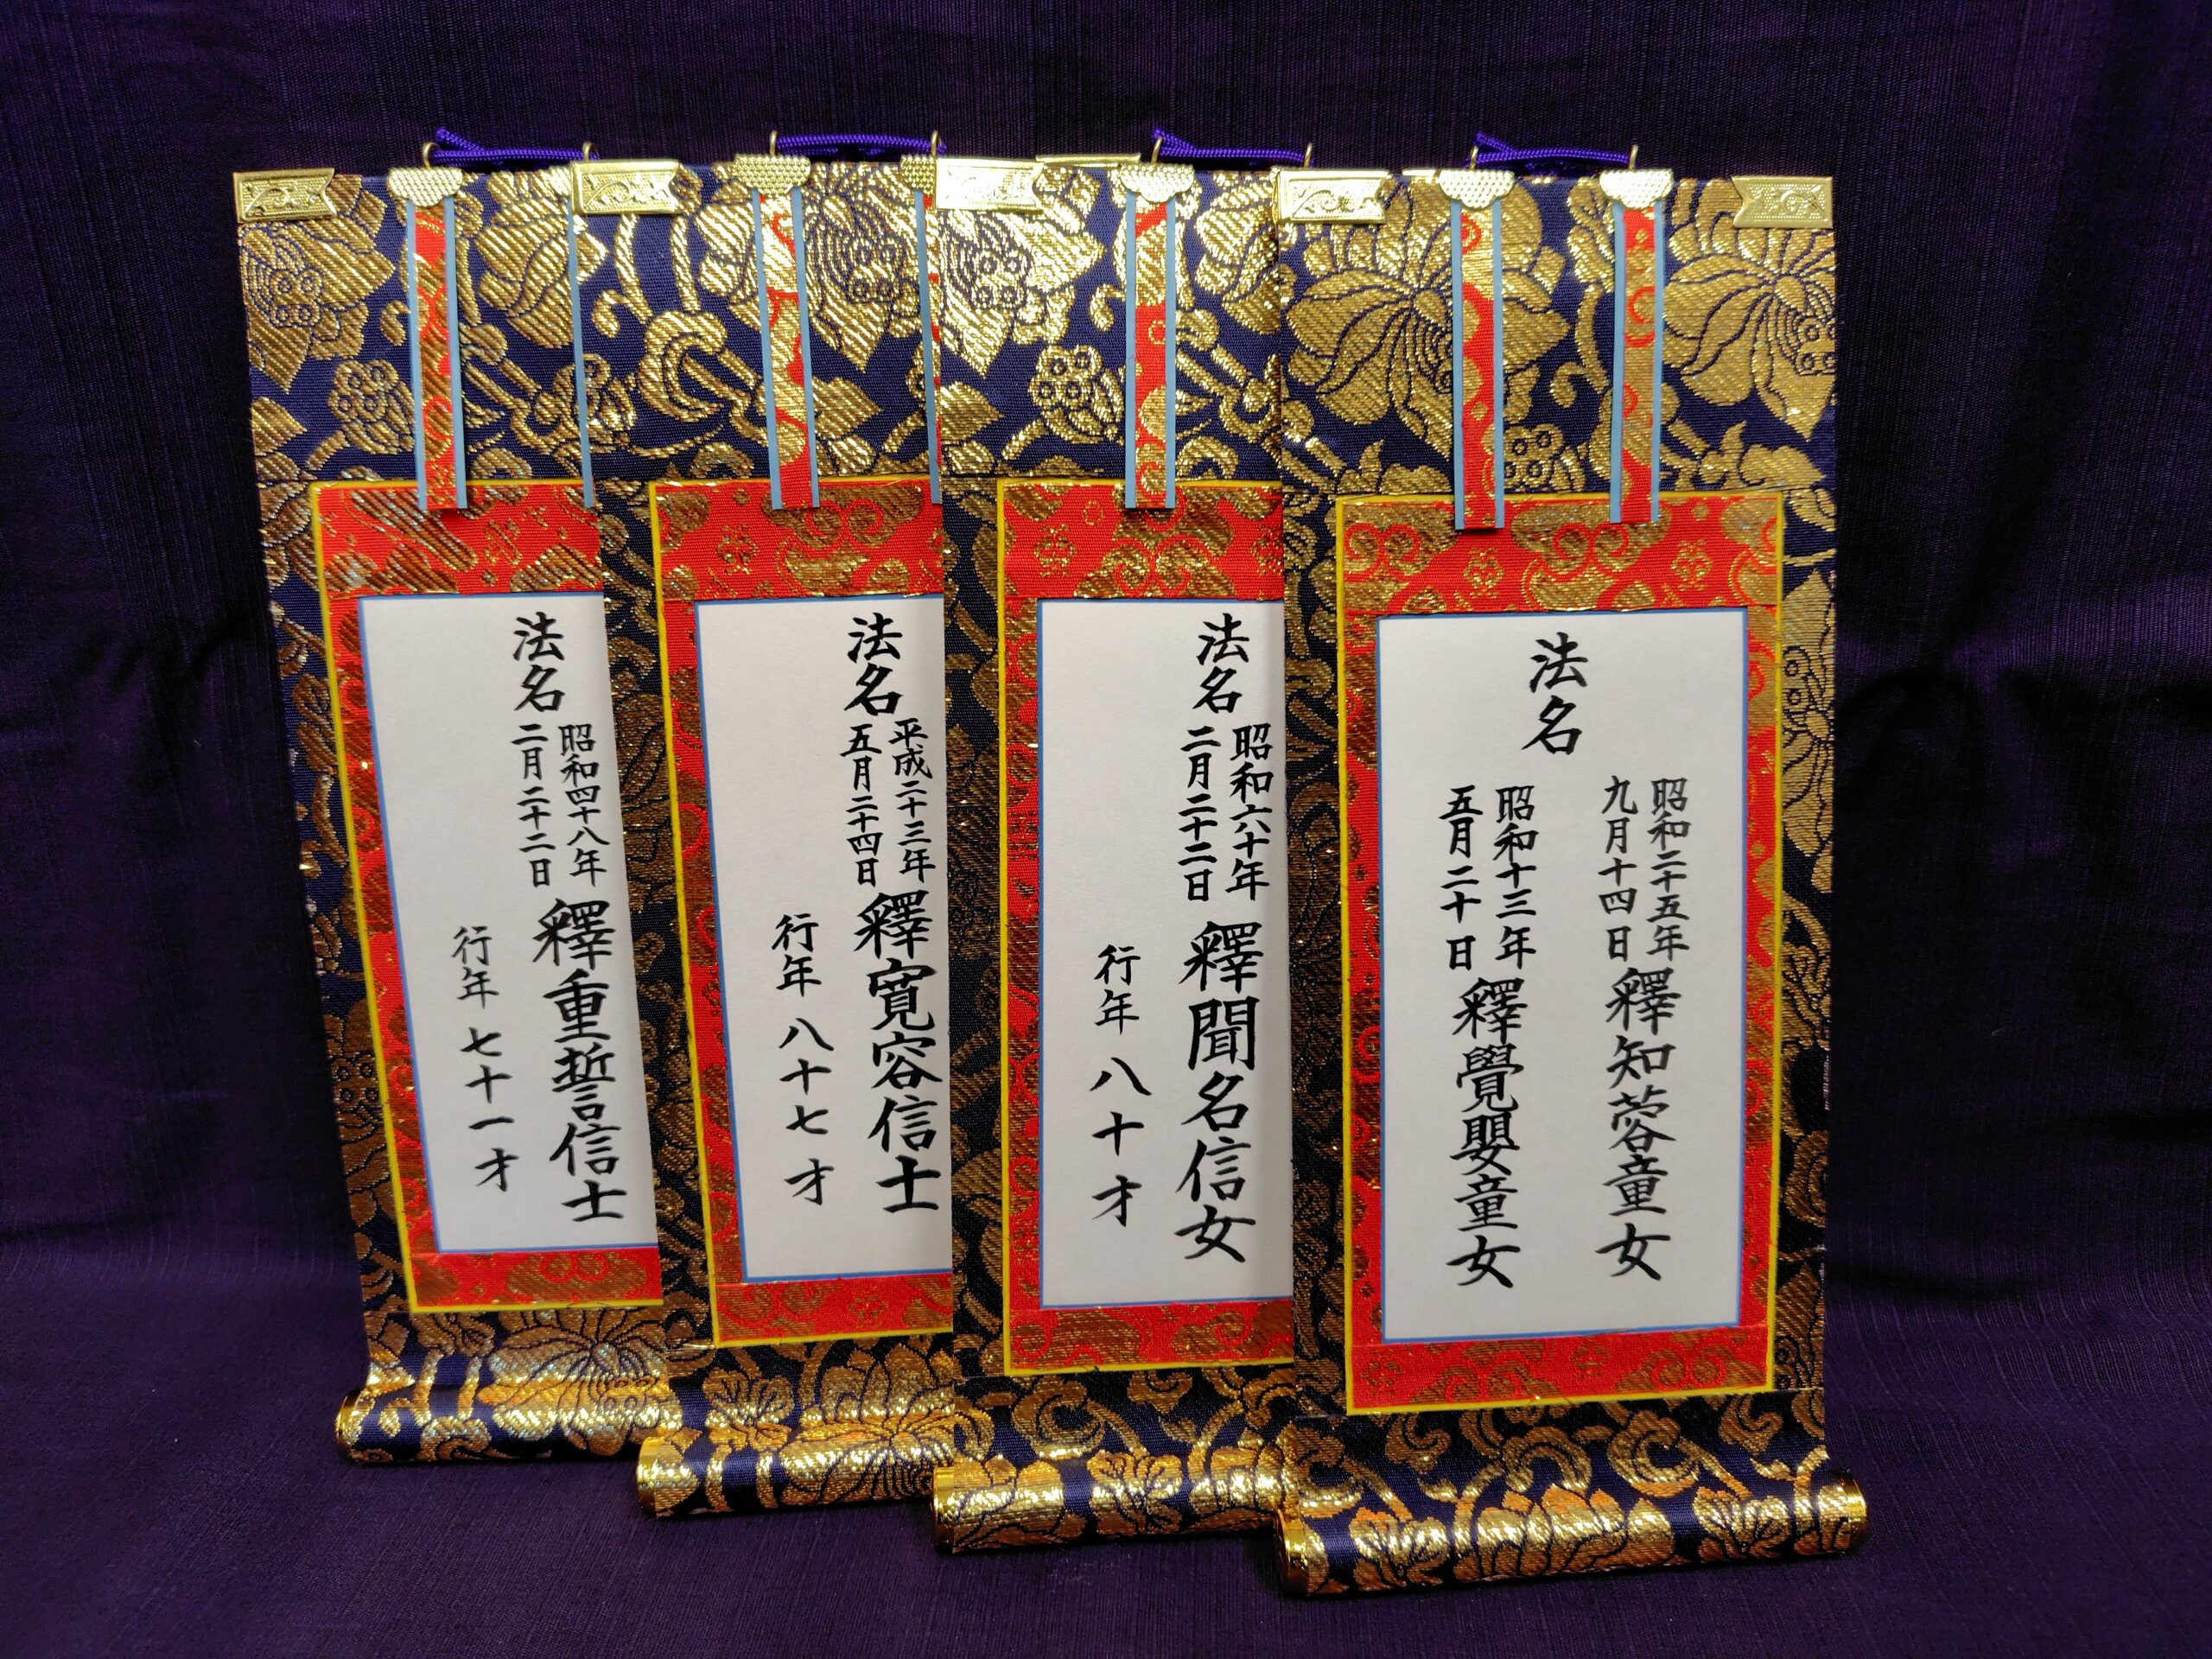 法名
昭和四十八年
二月二十二日
釋重誓信士
行年七十一才
法名
平成二十三年
五月二十四日
釋寛容信士
行年八十七才
法名
昭和六十年
二月二十二日
釋聞名信女
行年八十才
法名
昭和二十五年
九月十四日
釋知蓉童女
昭和十三年
五月二十日
釋覺嬰童女